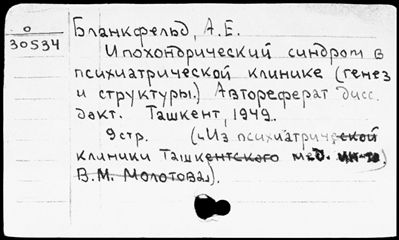 О
30534
Бланкфельд, А.Е.
Ипохондрический синдром в
психиатрической клинике (генез
и структуры.) Автореферат дисс.
докт. Ташкент, 1949.
9стр. („Из психиатрической
клиники Ташкентского мед. ин-та
В.М. Молотова").